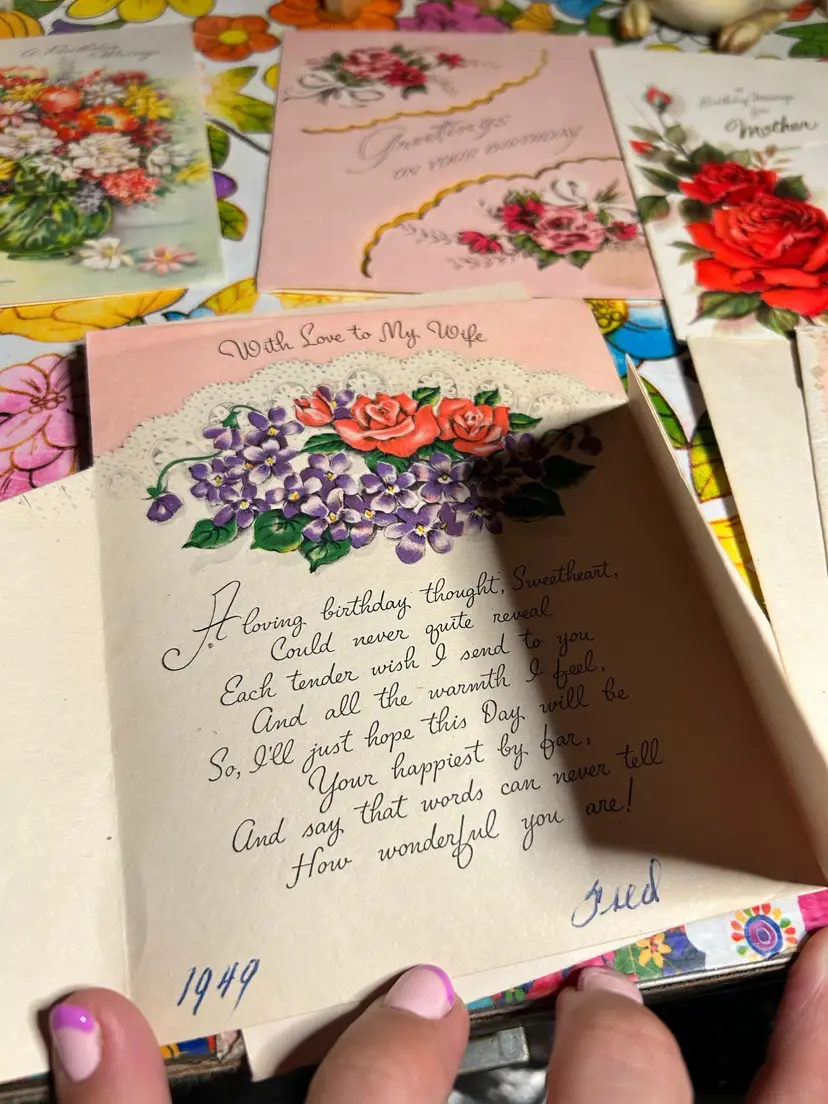 A Birthday Message
Greetings
on your birthday
A
Birthday Message
for
Mother
With Love to My Wife
A loving birthday thought, Sweetheart,
Could never quite reveal
Each tender wish I send to you
And all the warmth I feel,
So, I'll just hope this Day will be
Your happiest by far,
And say that words can never tell
How wonderful you are!
Fred
1949